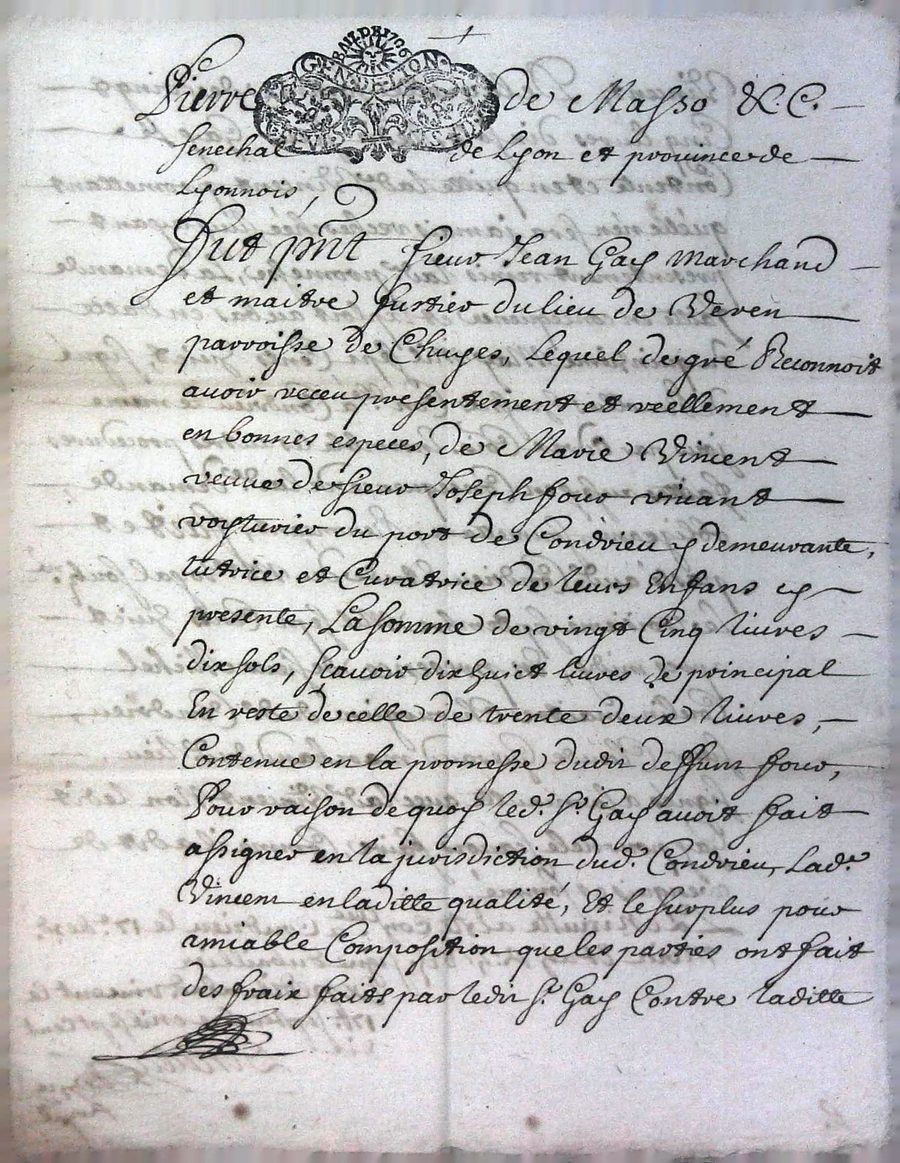 BAUX DE 1706
GEN DE LYON
Pierre de Masso &.C.
Senechal de Lyon et province de
Lyonnois,
Fut pnt sieur Jean Gay Marchand
et maitre fustier du lieu de Veren
parroisse de Chuyes, Lequel de gré Reconnoit
avoir receu presentement et reellement
en bonnes especes, de Marie Vincent
veuve de sieur Joseph four vivant
voyturier du port de Condrieu y demeurante,
tutrice et Curatrice de leurs Enfans cy
presente, La somme de vingt Cinq livres
dix sols, scavoir dix huict livres de principal
En reste de celle de trente deux livres,
Contenue en la promesse dudit deffunt four,
Pour raison de quoy led. Sr. Gay avoit fait
assigner en la jurisdiction dud. Condrieu, Lade.
Vincent en laditte qualité, Et le surplus pour
amiable Composition que les parties ont fait
des fraix faits par ledit Sr. Gay Contre laditte